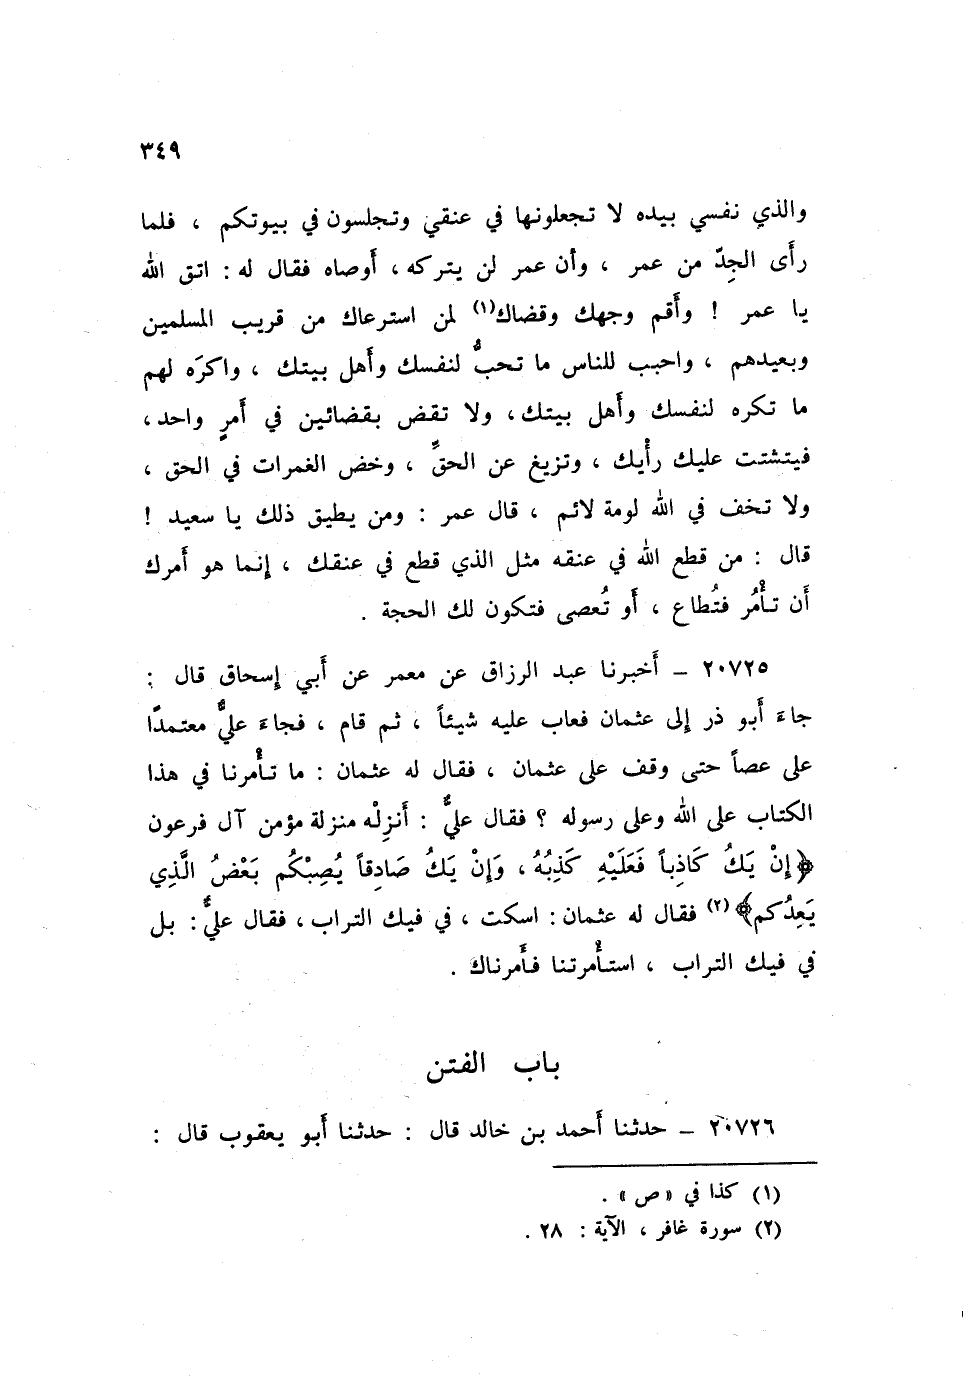 ٣٤٩
والذي نفسي بيده لا تجعلونها في عنقي وتجلسون في بيوتكم ، فلما
رأى الجِدّ من عمر ، وأن عمر لن يتركه ، أوصاه فقال له : اتق الله
يا عمر ! وأقم وجهك وقضاك(١) لمن استرعاك من قريب المسلمين
وبعيدهم ، واحبب للناس ما تحبُّ لنفسك وأهل بيتك ، واكرَه لهم
ما تكره لنفسك وأهل بيتك ، ولا تقض بقضائين في أمرٍ واحد ،
فيتشتت عليك رأيك ، وتزيغ عن الحقِّ ، وخض الغمرات في الحق ،
ولا تخف في الله لومة لائم ، قال عمر : ومن يطيق ذلك يا سعيد !
قال : من قطع الله في عنقه مثل الذي قطع في عنقك ، إنما هو أمرك
أن تأمُر فتُطاع ، أو تُعصى فتكون لك الحجة .
٢٠٧٢٥ – أخبرنا عبد الرزاق عن معمر عن أبي إسحاق قال :
جاءَ أبو ذر إلى عثمان فعاب عليه شيئاً ، ثم قام ، فجاءَ عليٌّ معتمدًا
على عصاً حتى وقف على عثمان ، فقال له عثمان : ما تأمرنا في هذا
الكتاب على الله وعلى رسوله ؟ فقال عليٌّ : أنزِلْه منزلة مؤمن آل فرعون
﴿إِنْ يَكُ كَاذِباً فَعَلَيْهِ كَذِبُهُ ، وَإِنْ يَكُ صَادِقاً يُصِبْكُم بَعْضُ الَّذِي
يَعِدُكم﴾(٢) فقال له عثمان : اسكت ، في فيك التراب ، فقال عليٌّ : بل
في فيك التراب ، استأمرتنا فأمرناك .
باب الفتن
٢٠٧٢٦ – حدثنا أحمد بن خالد قال : حدثنا أبو يعقوب قال :
(١) كذا في «ص» .
(٢) سورة غافر ، الآية : ٢٨ .